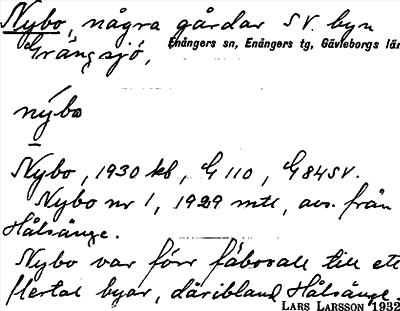 Nybo, några gårdar SV. byn
Grängsjö,
Enångers sn, Enångers tg, Gävleborgs län
nýbo
Nybo, 1930 kb, G 110, G 84 SV.
Nybo nr 1, 1929 mtl, avs. från
Hålsänge.
Nybo var förr fäbovall till ett
flertal byar, däribland Hålsänge.
LARS LARSSON 1932